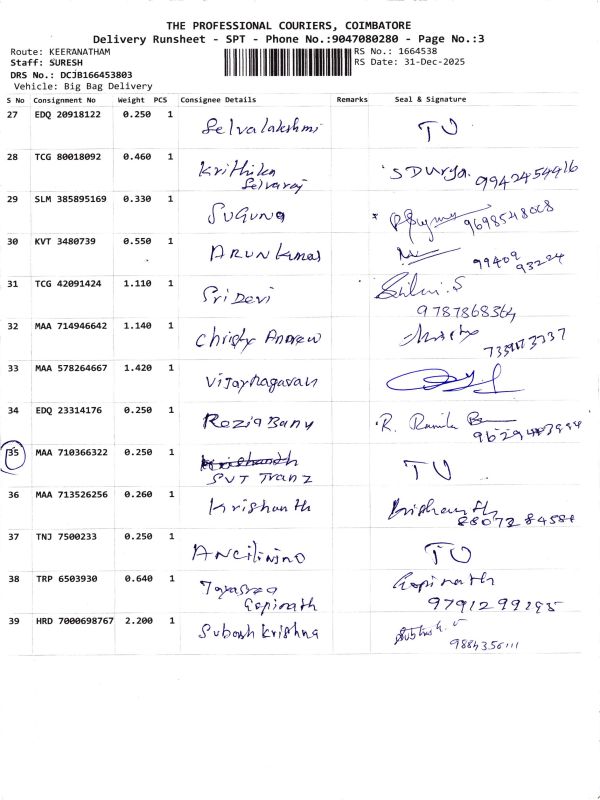 THE PROFESSIONAL COURIERS, COIMBATORE
Delivery Runsheet - SPT - Phone No.:9047080280 - Page No.:3
Route: KEERANATHAM
RS No.: 1664538
Staff: SURESH
RS Date: 31-Dec-2025
DRS No.: DCJB166453803
Vehicle: Big Bag Delivery
S No Consignment No Weight PCS Consignee Details Remarks Seal & Signature
27 EDQ 20918122 0.250 1 Selvalakshmi
28 TCG 80018092 0.460 1 Krithika S Durga. 9942454916
Selvaraj
29 SLM 385895169 0.330 1 SUGUNA 9698548008
30 KVT 3480739 0.550 1 ARUN Kumar 99409
93224
31 TCG 42091424 1.110 1 Sri Devi
9787868364
32 MAA 714946642 1.140 1 Christy Andrew
33 MAA 578264667 1.420 1 Vijaynagaran
34 EDQ 23314176 0.250 1 Rozia Banu R.
35 MAA 710366322 0.250 1
SVT Tranz
36 MAA 713526256 0.260 1 Krishanth Krishanth
37 TNJ 7500233 0.250 1
38 TRP 6503930 0.640 1 Gopinath
Gopinath 9791299195
39 HRD 7000698767 2.200 1 Subash Krishna
9884356111